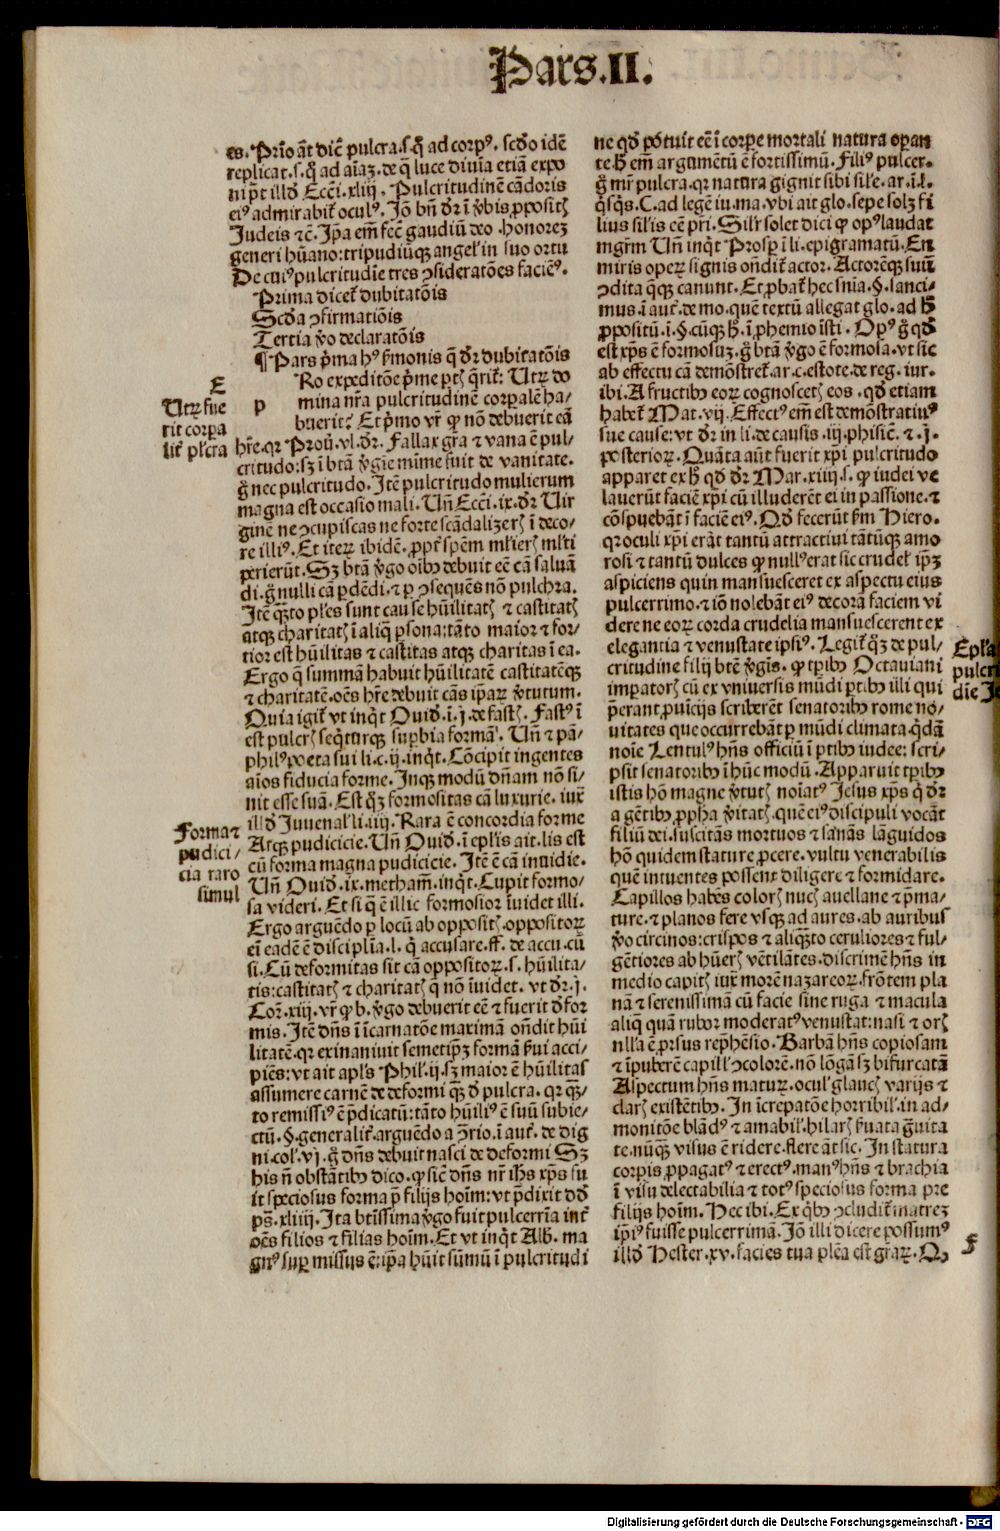 Pars.II.
es. Prīo āt dic̄ pulcra.s.q̄ ad corpꝰ. scd̄o idē
replicat.s.q̄ ad aīaꝫ.de q̄ luce diuīa etiā expo
ni p̄t illd̓ Ecci̓.xliij. Pulcritudinē cādoris
eiꝰ admirabit̓ oculꝰ. Iō bn̄ dr̄ ī v̓bis ꝓpositꝭ
Iudeis ⁊c̄. Ip̄a em̄ fec̄ gaudiū deo.honoreꝫ
generi hūano:tripudiūqꝫ angel̓ in suo ortu
De cuiꝰ pulcritudīe tres ꝯsideratōes faciēꝰ.
Prima dicet̓ dubitatōis
Scd̄a ꝯfirmatiōis
Tertia v̓o declaratōis
¶ Pars p̓ma hꝰ ẜmonis q̄ dr̄ dubitatōis
E
PRo expeditōe p̓me ꝑtꝭ q̄rit̓: Utꝝ do
mina nr̄a pulcritudinē corꝑalē ha/
buerit? Et p̓mo vr̄ ꝙ nō debuerit eā
Utꝝ fue
rit corꝑa
lit̓ pl̓cra
hr̄e.qr Prou̓.vl.dr̄. Fallax gr̄a ⁊ vana ē pul/
critudo:sꝫ ī btā v̓gīe mīme fuit de vanitate.
g̊ nec pulcritudo. Itē pulcritudo mulierum
magna est occasio mali. Un̄ Ecci̓.ix.dr̄ Vir
ginē ne ꝯcupiscas ne forte scādalizerꝭ ī deco/
re illiꝰ. Et iteꝝ ibidē. ꝓpt̓ spēm ml̓ierꝭ ml̓ti
perierūt. Sꝫ btā v̓go oībꝰ debuit eē cā saluā
di.g̊ nulli cā ꝑdēdi.⁊ ꝑ ꝯsequēs nō pulchra.
Itē qꝫto pl̓es sunt cause hūilitatꝭ ⁊ castitatꝭ
atqꝫ charitatꝭ ī aliq̄ ꝑsona:tāto maior ⁊ for/
tior est hūilitas ⁊ castitas atqꝫ charitas ī ea.
Ergo q̄ summā habuit hūilitatē castitatēqꝫ
⁊ charitatē.oēs hr̄e debuit cās ip̄aꝝ v̓tutum.
Quia igit̓ vt inqt̓ Ouid̓.ī.j.de fastꝭ. Fastꝰ ī
est pulcrꝭ seq̓turqꝫ suꝑbia formā. Un̄ ⁊ pā/
philꝰ poeta sui li.c.ij.inqt̓. Cōcipit ingentes
aīos fiducia forme. Inqꝫ modū dn̄am nō si/
nit esse suā. Est q̄ꝫ formositas cā luxurie. iux̄
illd̓ Iuuenal̓ li.iiij. Rara ē concordia forme
Atqꝫ pudicicie. Un̄ Ouid̓.ī epl̓is ait.lis est
cū forma magna pudicicie. Itē ē cā inuidie.
Forma ⁊
pudici/
cia raro
simul
Un̄ Ouid̓.ix.metham̄.inqt̓. Cupit formo/
sa videri. Et si q̄ ē illic formosior īuidet illi.
Ergo arguēdo ꝑ locū ab oppositꝭ.oppositoꝝ
eī eadē ē disciplīa.l. q̄ accusare.ff. de accu.cū
si. Cū deformitas sit cā oppositoꝝ.s. hūilita/
tis:castitatꝭ ⁊ charitatꝭ q̄ nō īuidet. vt dr̄.j.
Cor̄.xiij. vr̄ ꝙ b.v̓go debuerit eē ⁊ fuerit d̓for
mis. Itē dn̄s ī īcarnatōe maximā on̄dit hūi
litatē.qr exinaniuit semetip̄ꝫ formā ẜui acci/
piēs:vt ait apl̓s Phil̓.ij.sꝫ maior ē hūilitas
assumere carnē de deformi qꝫ d̓ pulcra. qr qꝫ/
to remissiꝰ ē p̄dicatū:tāto hūiliꝰ ē suū subie/
ctū.§.generalit̓.arguēdo a ꝯ̄rio.ī aut̓. de dig
ni.col̓.vj.g̊ dn̄s debuit nasci de deformi Sꝫ
his n̄ obstātibꝰ dico.ꝙ sic̄ dn̄s nr̄ ih̓s xp̄s fu
it speciosus forma p̄ filijs hoīm:vt p̄dixit dd̓
ps̄.xliiij. Ita btīssima v̓go fuit pulcerrīa int̓
oēs filios ⁊ filias hoīm. Et vt inqt̓ Alb̓. ma
gnꝰ suꝑ missus ē:ip̄a hūit sūmū ī pulcritudi
ne qd̓ potuit eē ī corꝑe mortali natura oꝑan
te.Hͦ em̄ argumētū ē fortissimū. Filiꝰ pulcer.
g̊ mr̄ pulcra.qr natura gignit sibi sil̓e.ar.ī.l.
q̓sq̓s. C.ad legē iu.ma.vbi ait glo.sepe solꝫ fi
lius sil̓is eē pr̄i. Sil̓r solet dici ꝙ opꝰ laudat
mgr̄m Un̄ inqt̓ Prosꝑ ī li.epigramatū. En
miris oꝑeꝝ signis on̄dit̓ actor. Actorēqꝫ suū
ꝯdita q̄qꝫ canunt. Et ꝓbat̓ hec sn̄ia.§.sanci/
mus.ī aut̓.de mo.quē textū allegat glo.ad hͦ
ꝓpositū.ī.§.cūqꝫ hͦ.ī ꝓhemio īsti. Opꝰ g̊ qd̓
est xp̄s ē formosuꝫ.g̊ btā v̓go ē formosa.vt sic̄
ab effectu cā demōstret̓.ar.c.estote.de reg.iur.
ibi. A fructibꝰ eoꝝ cognoscetꝭ eos.qd̓ etiam
habet̓ Mat.vij. Effectꝰ em̄ est demōstratiuꝰ
sue cause:vt dr̄ in li.de causis.iij.phisic̄.⁊.j.
posterioꝝ. Quāta aūt fuerit xp̄i pulcritudo
apparet ex hͦ qd̓ dr̄ Mar.xiiij.s.ꝙ iudei ve
lauerūt faciē xp̄i cū illuderēt ei in passione.⁊
cōspuebāt ī faciē eiꝰ. Qd̓ fecerūt ẜm Hiero.
qr oculi xp̄i erāt tantū attractiui tātūqꝫ amo
rosi ⁊ tantū dulces ꝙ nullꝰ erat sic crudel̓ ip̄ꝫ
aspiciens quin mansuesceret ex aspectu eius
pulcerrimo.⁊ iō nolebāt eiꝰ decorā faciem vi
dere ne eoꝝ corda crudelia mansuescerent ex
elegantia ⁊ venustate ipsiꝰ. Legit̓ q̄ꝫ de pul/
critudine filij btē v̓gīs. ꝙ tꝑibꝰ Octauiani
Epl̓a
pulcri
dīe Je
imꝑatorꝭ cū ex vniuersis mūdi ꝑtibꝰ illi qui
p̄erant ꝓuīcijs scriberēt senatoribꝰ rome no/
uitates que occurrebāt ꝑ mūdi climata q̓dā
noīe Lentulꝰ hn̄s officiū ī ꝑtibꝰ iudee: scri/
psit senatoribꝰ ī hūc modū. Apparuit tꝑibꝰ
istis hō magne v̓tutꝭ noīatꝰ Iesus xp̄s q̓ dr̄
a gētibꝰ ꝓpha v̓itatꝭ.quē eiꝰ discipuli vocāt
filiū dei.suscitās mortuos ⁊ sanās lāguidos
hō quidem stature ꝓcere.vultu venerabilis
quē intuentes possent diligere ⁊ formidare.
Capillos habēs colorꝭ nucꝭ auellane ⁊ p̓ma/
ture.⁊ planos fere vsqꝫ ad aures.ab auribus
v̓o circinos:crispos ⁊ aliqꝫto ceruliores ⁊ ful/
gētiores ab hūerꝭ vētilātes.discrimē hn̄s in
medio capitꝭ iux̄ morē nazareoꝝ.frōtem pla
nā ⁊ serenissimā cū facie sine ruga ⁊ macula
aliq̄ quā rubor moderatꝰ venustat:nasi ⁊ orꝭ
nl̓la ē ꝓrsus rep̄hēsio. Barbā hn̄s copiosam
⁊ īpuberē capill̓ ꝯcolorē.nō lōgā sꝫ bifurcatā
Aspectum hn̄s matuꝝ.ocul̓ glaucꝭ varijs ⁊
clarꝭ existētibꝰ. In īcrepatōe horribil̓.in ad/
monitōe blādꝰ ⁊ amabil̓.hilarꝭ ẜuata g̓uita
te.nūqꝫ visus ē ridere.flere āt sic. In statura
corꝑis ꝓpagatꝰ ⁊ erectꝰ.manꝰ hn̄s ⁊ brachia
ī visu delectabilia ⁊ totꝰ speciosus forma pre
filijs hoīm. Hec ibi. Ex q̓bꝰ ꝯcludit̓ matreꝫ
ip̄iꝰ fuisse pulcerrimā. Iō illi dicere possumꝰ
illd̓ Hester.xv.facies tua plēa est graꝝ. Qꝫ
F